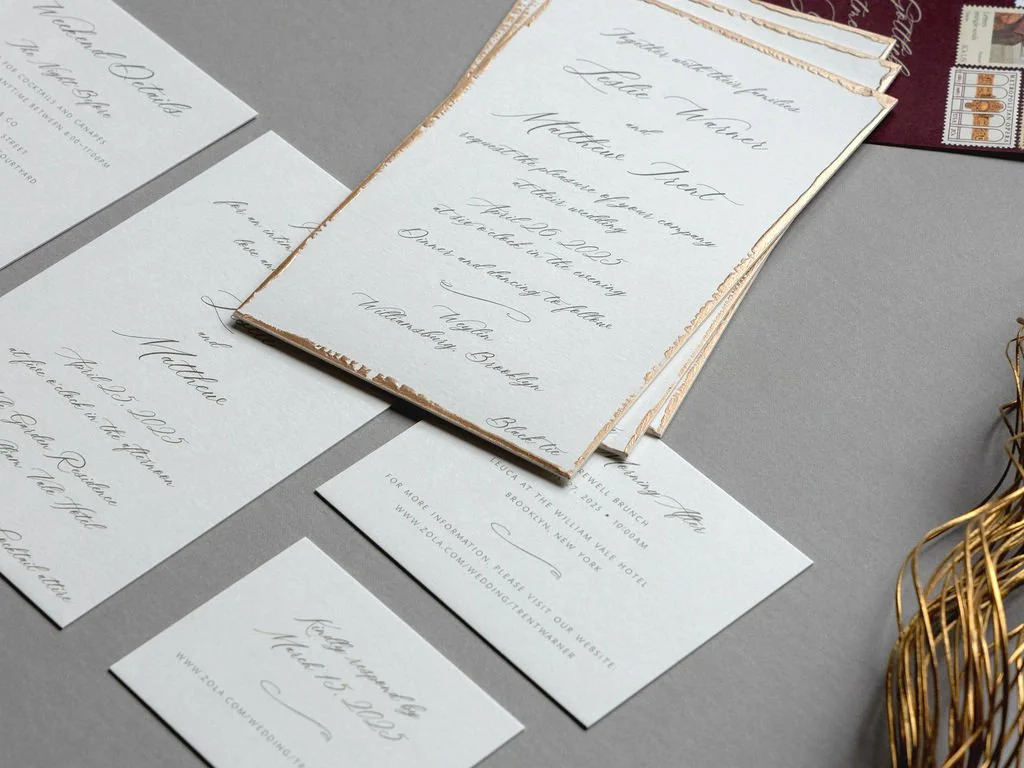 Weekend Details
The Night Before
FOR COCKTAILS AND CANAPES
ANYTIME BETWEEN 8:00-11:00PM
& CO
STREET
COURTYARD
for an
love
and
Matthew
April 25, 2025
at five o'clock in the afternoon
Garden Residence
William Vale Hotel
Cocktail attire
Together with their families
Leslie Warner
and
Matthew Trent
request the pleasure of your company
at their wedding
April 26, 2025
at six o'clock in the evening
Dinner and dancing to follow
Weylin
Williamsburg, Brooklyn
Black tie
Morning After
REWELL BRUNCH
2025 • 10:00AM
LEUCA AT THE WILLIAM VALE HOTEL
BROOKLYN, NEW YORK
FOR MORE INFORMATION, PLEASE VISIT OUR WEBSITE:
WWW.ZOLA.COM/WEDDING/TRENTWARNER
Kindly respond by
March 15, 2025
WWW.ZOLA.COM/WEDDING/TR